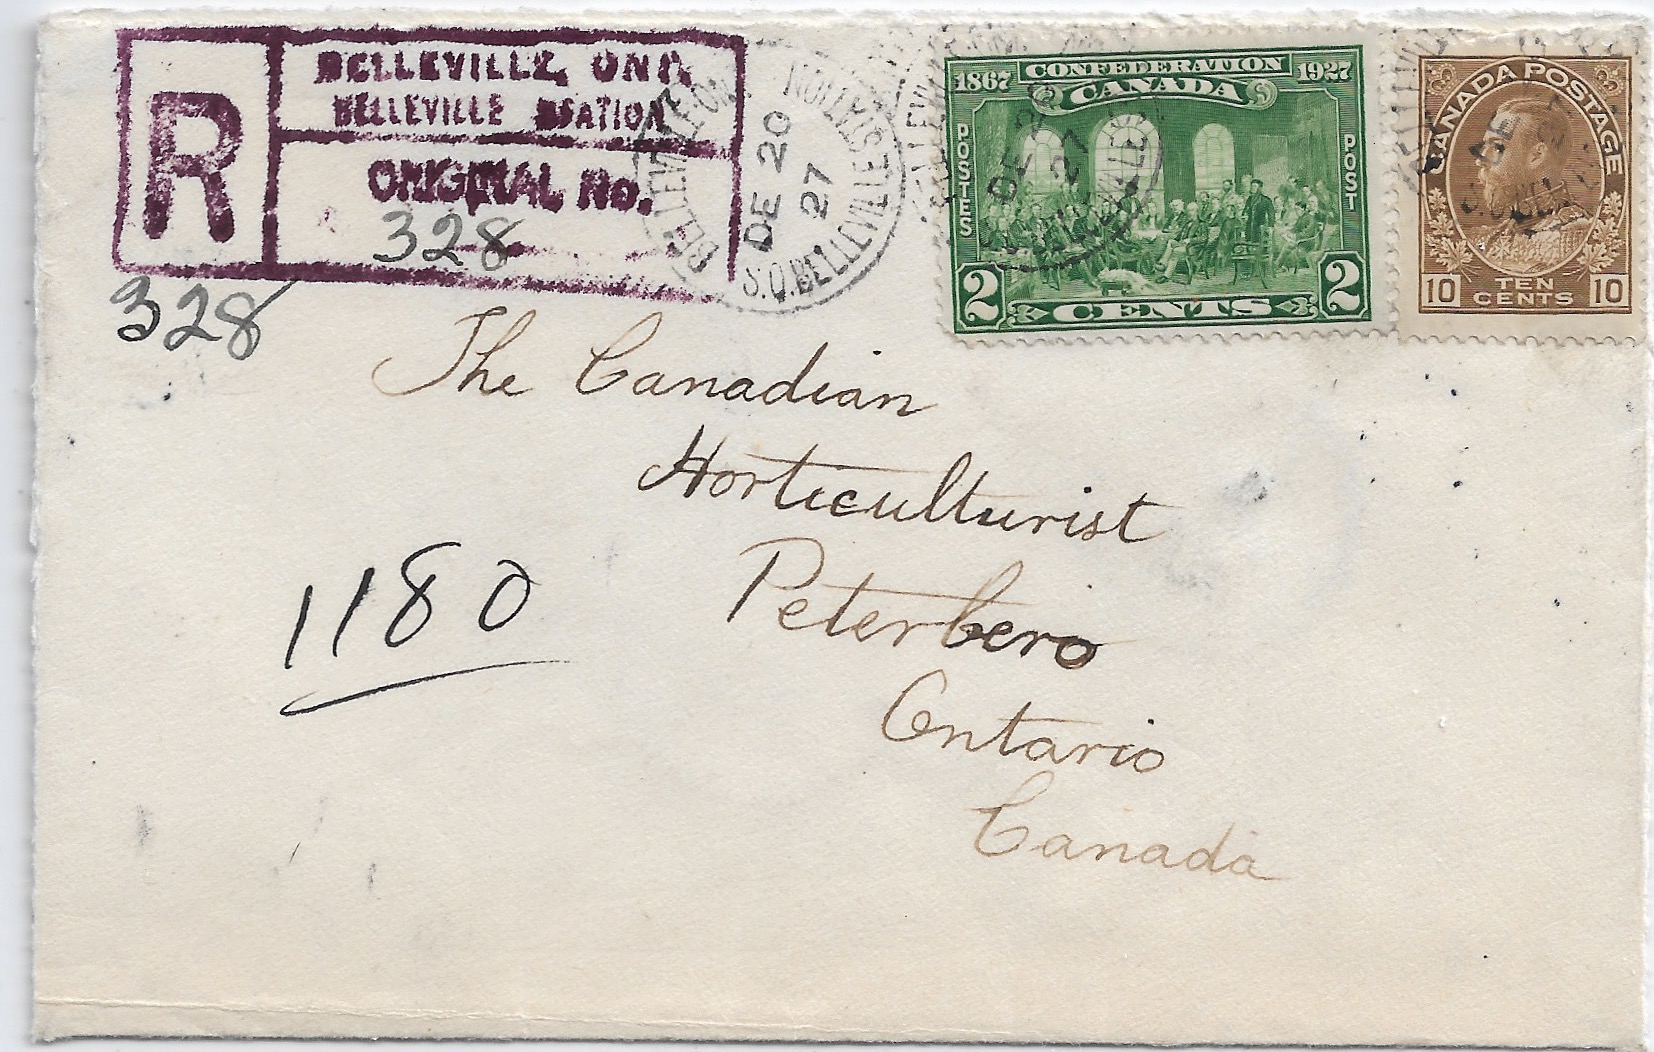 R
BELLEVILLE, ONT.
BELLEVILLE STATION
ORIGINAL No.
328
328
BELLEVILLE ONT.
DE 20
27
S.O. BELLEVILLE
1867 CONFEDERATION 1927
CANADA
POSTES
POST
DE 20
27
2 CENTS 2
CANADA POSTAGE
DE
27
10 TEN CENTS 10
The Canadian
Horticulturist
Peterbero
Ontario
Canada
1180